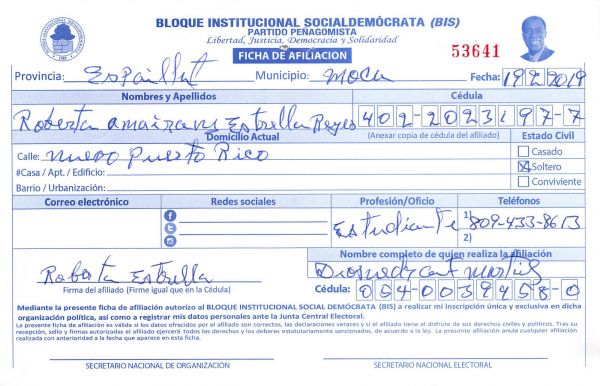 BLOQUE INSTITUCIONAL SOCIALDEMÓCRATA (BIS)
PARTIDO PEÑAGOMISTA
Libertad, Justicia, Democracia y Solidaridad
FICHA DE AFILIACION
53641
Provincia: Espaillat Municipio: moca Fecha: 19 2 2019
Nombres y Apellidos Cédula
Robertan amairany Estrella Reyes 402-2023197-7
Domicilio Actual (Anexar copia de cédula del afiliado) Estado Civil
Calle: nuevo Puerto Rico Casado
#Casa / Apt. / Edificio: Soltero
Barrio / Urbanización: Conviviente
Correo electrónico Redes sociales Profesión/Oficio Teléfonos
Estudiante 1) 809-433-8613
2)
Nombre completo de quien realiza la afiliación
Roberta Estrella
Firma del afiliado (Firme igual que en la Cédula) Cédula: 054-0039458-0
Mediante la presente ficha de afiliación autorizo al BLOQUE INSTITUCIONAL SOCIAL DEMÓCRATA (BIS) a realizar mi inscripción única y exclusiva en dicha
organización política, así como a registrar mis datos personales ante la Junta Central Electoral.
La presente ficha de afiliación es válida si los datos ofrecidos por el afiliado son correctos, las declaraciones veraces y si el afiliado tiene el disfrute de sus derechos civiles y políticos. Tras su
recepción, sello y firmas autorizadas el afiliado ejercerá todos los derechos y los deberes estatutariamente sancionados, de acuerdo a la ley. La presente afiliación anula cualquier afiliación
realizada con anterioridad a la fecha que aparece en esta ficha.
SECRETARIO NACIONAL DE ORGANIZACIÓN SECRETARIO NACIONAL ELECTORAL